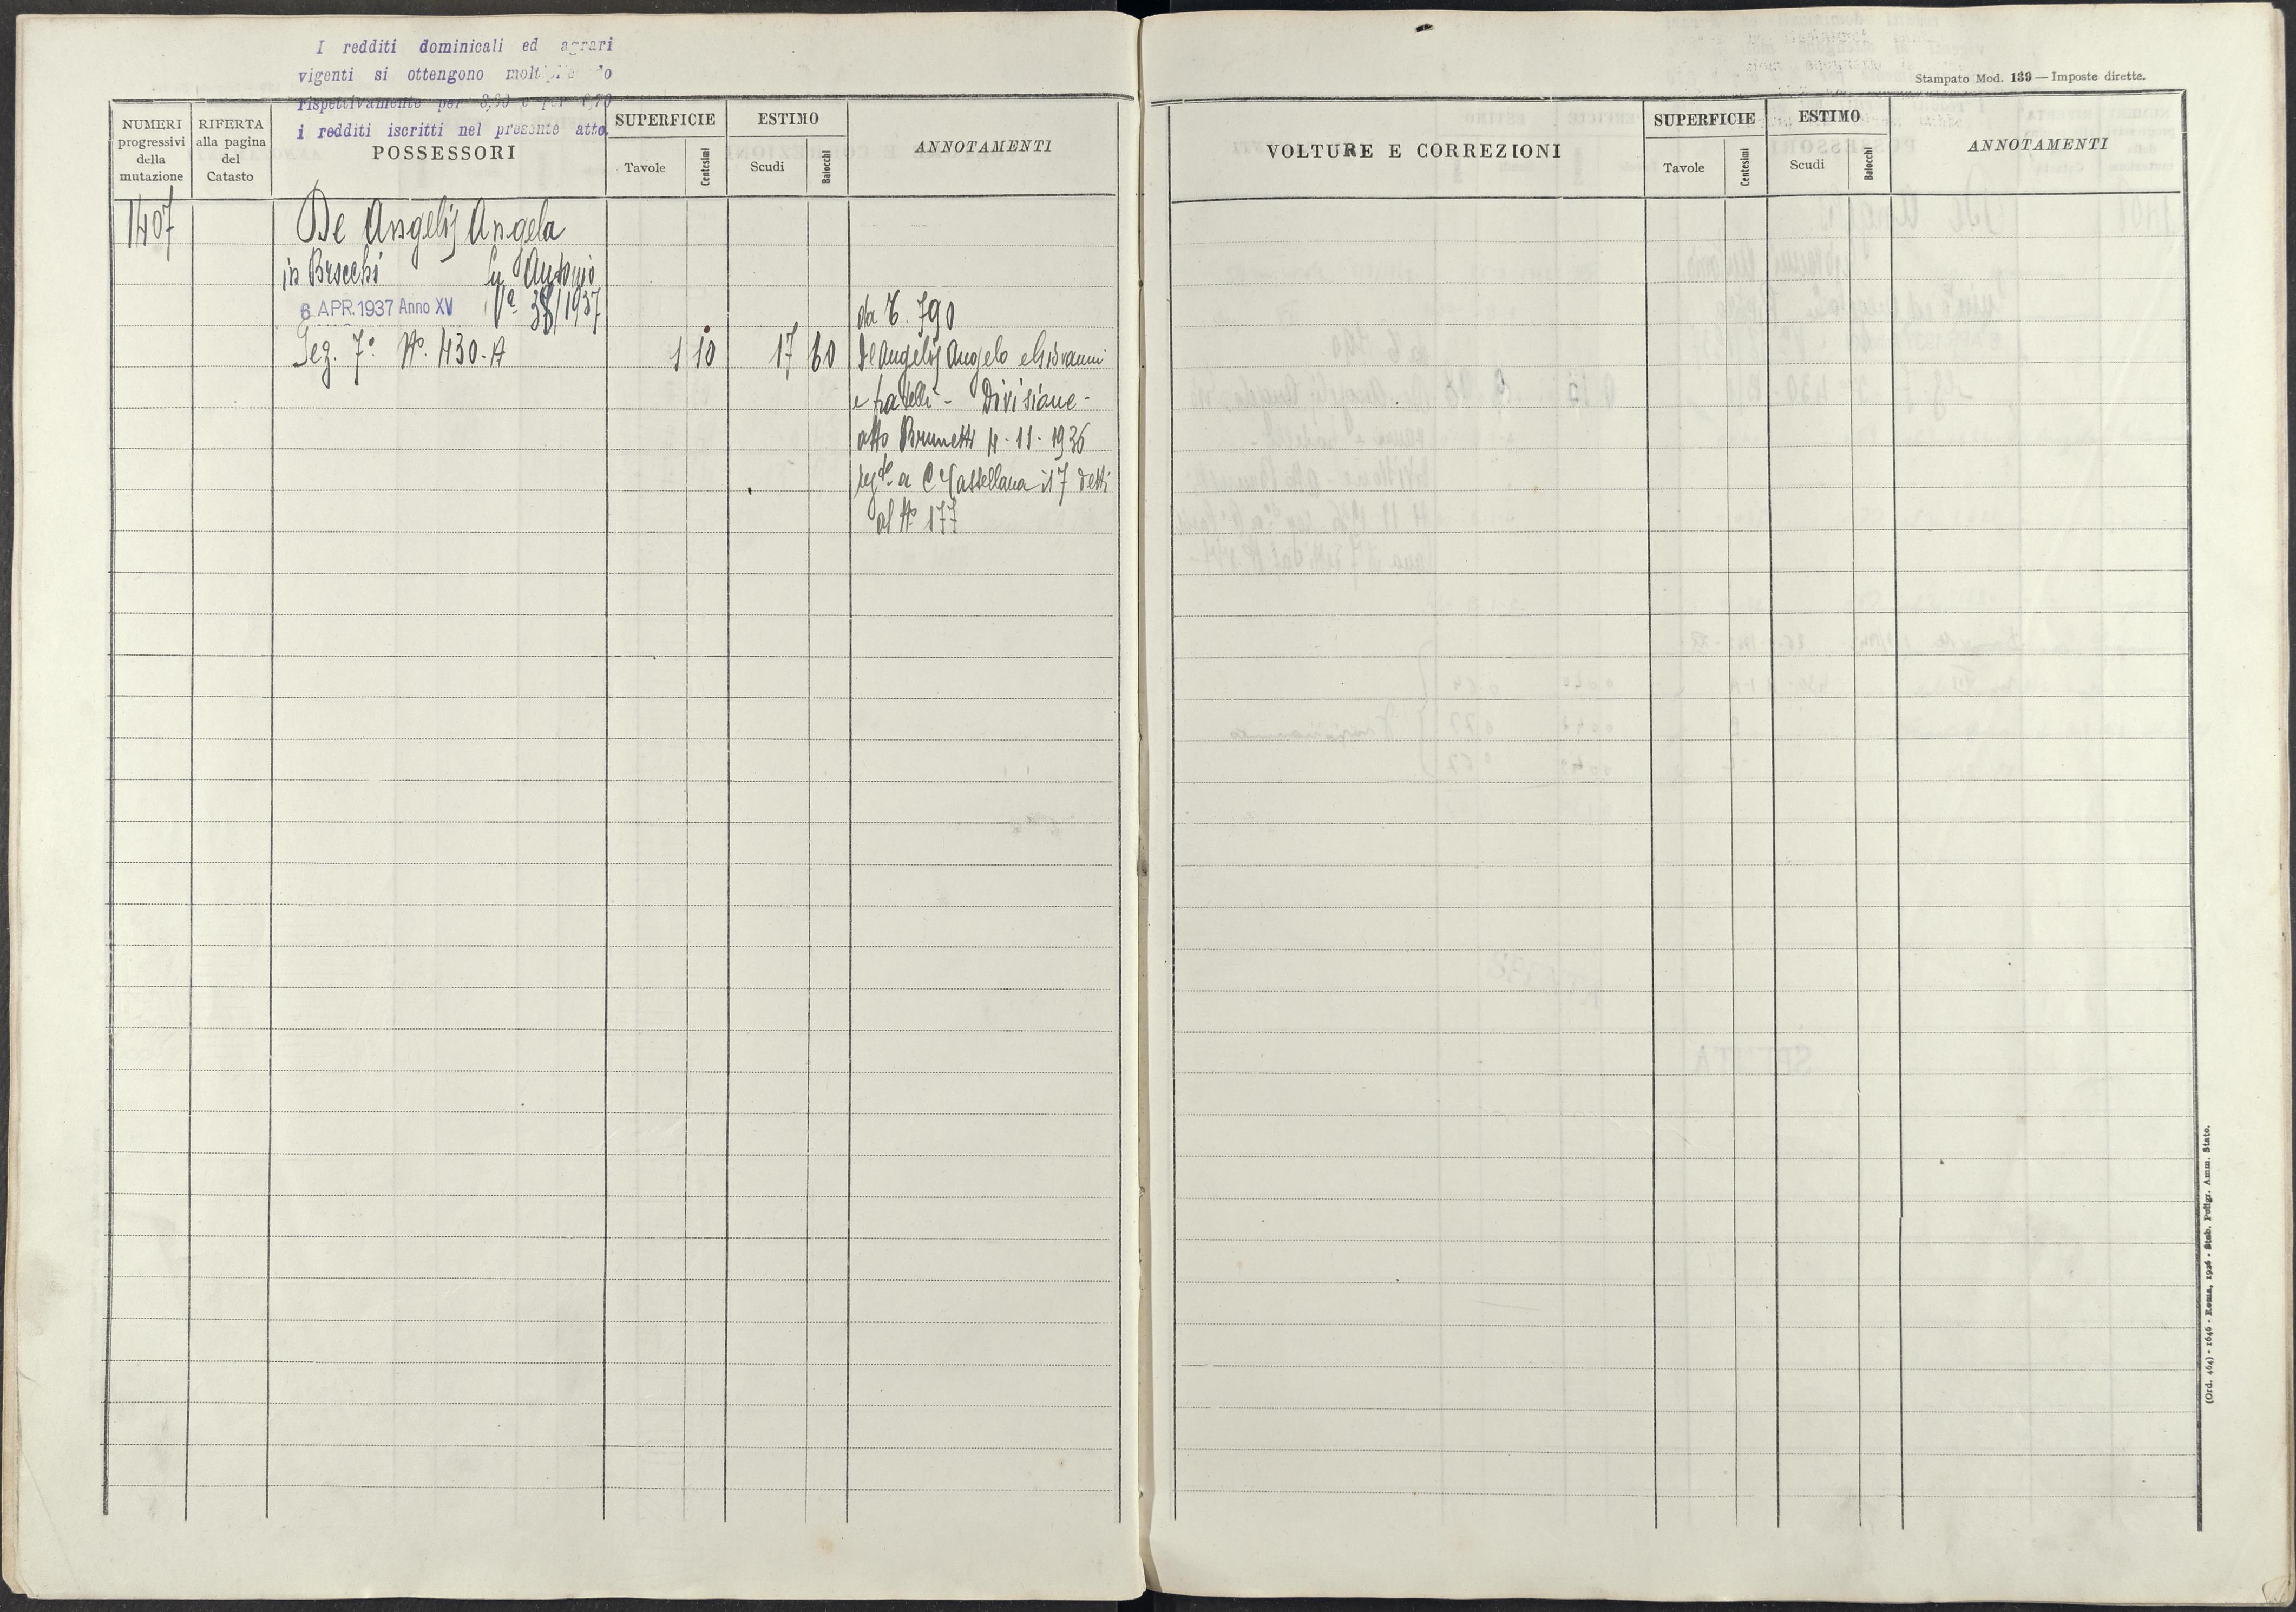 I redditi dominicali ed agrari
vigenti si ottengono
rispettivamente per
i redditi iscritti nel presente atto
NUMERI progressivi della mutazione
RIFERTA alla pagina del Catasto
POSSESSORI
SUPERFICIE
Tavole
Centesimi
ESTIMO
Scudi
Baiocchi
ANNOTAMENTI
1407
De Angelis Angela
in fu Antonio
6 APR. 1937 Anno XV Va 38/1937
da C. 790
Sez. 7a No. 430-A 1 10 17 60 De Angelis Angelo e Giovanni
e fratelli - Divisione -
atto Brunetti 4-11-1936
regto a C Castellana il 7 detti
al No 177
Stampato Mod. 139 — Imposte dirette.
VOLTURE E CORREZIONI
SUPERFICIE
Tavole
Centesimi
ESTIMO
Scudi
Baiocchi
ANNOTAMENTI
(Ord. 464) - 1646 - Roma, 1926 - Stab. Poligr. Amm. Stato.